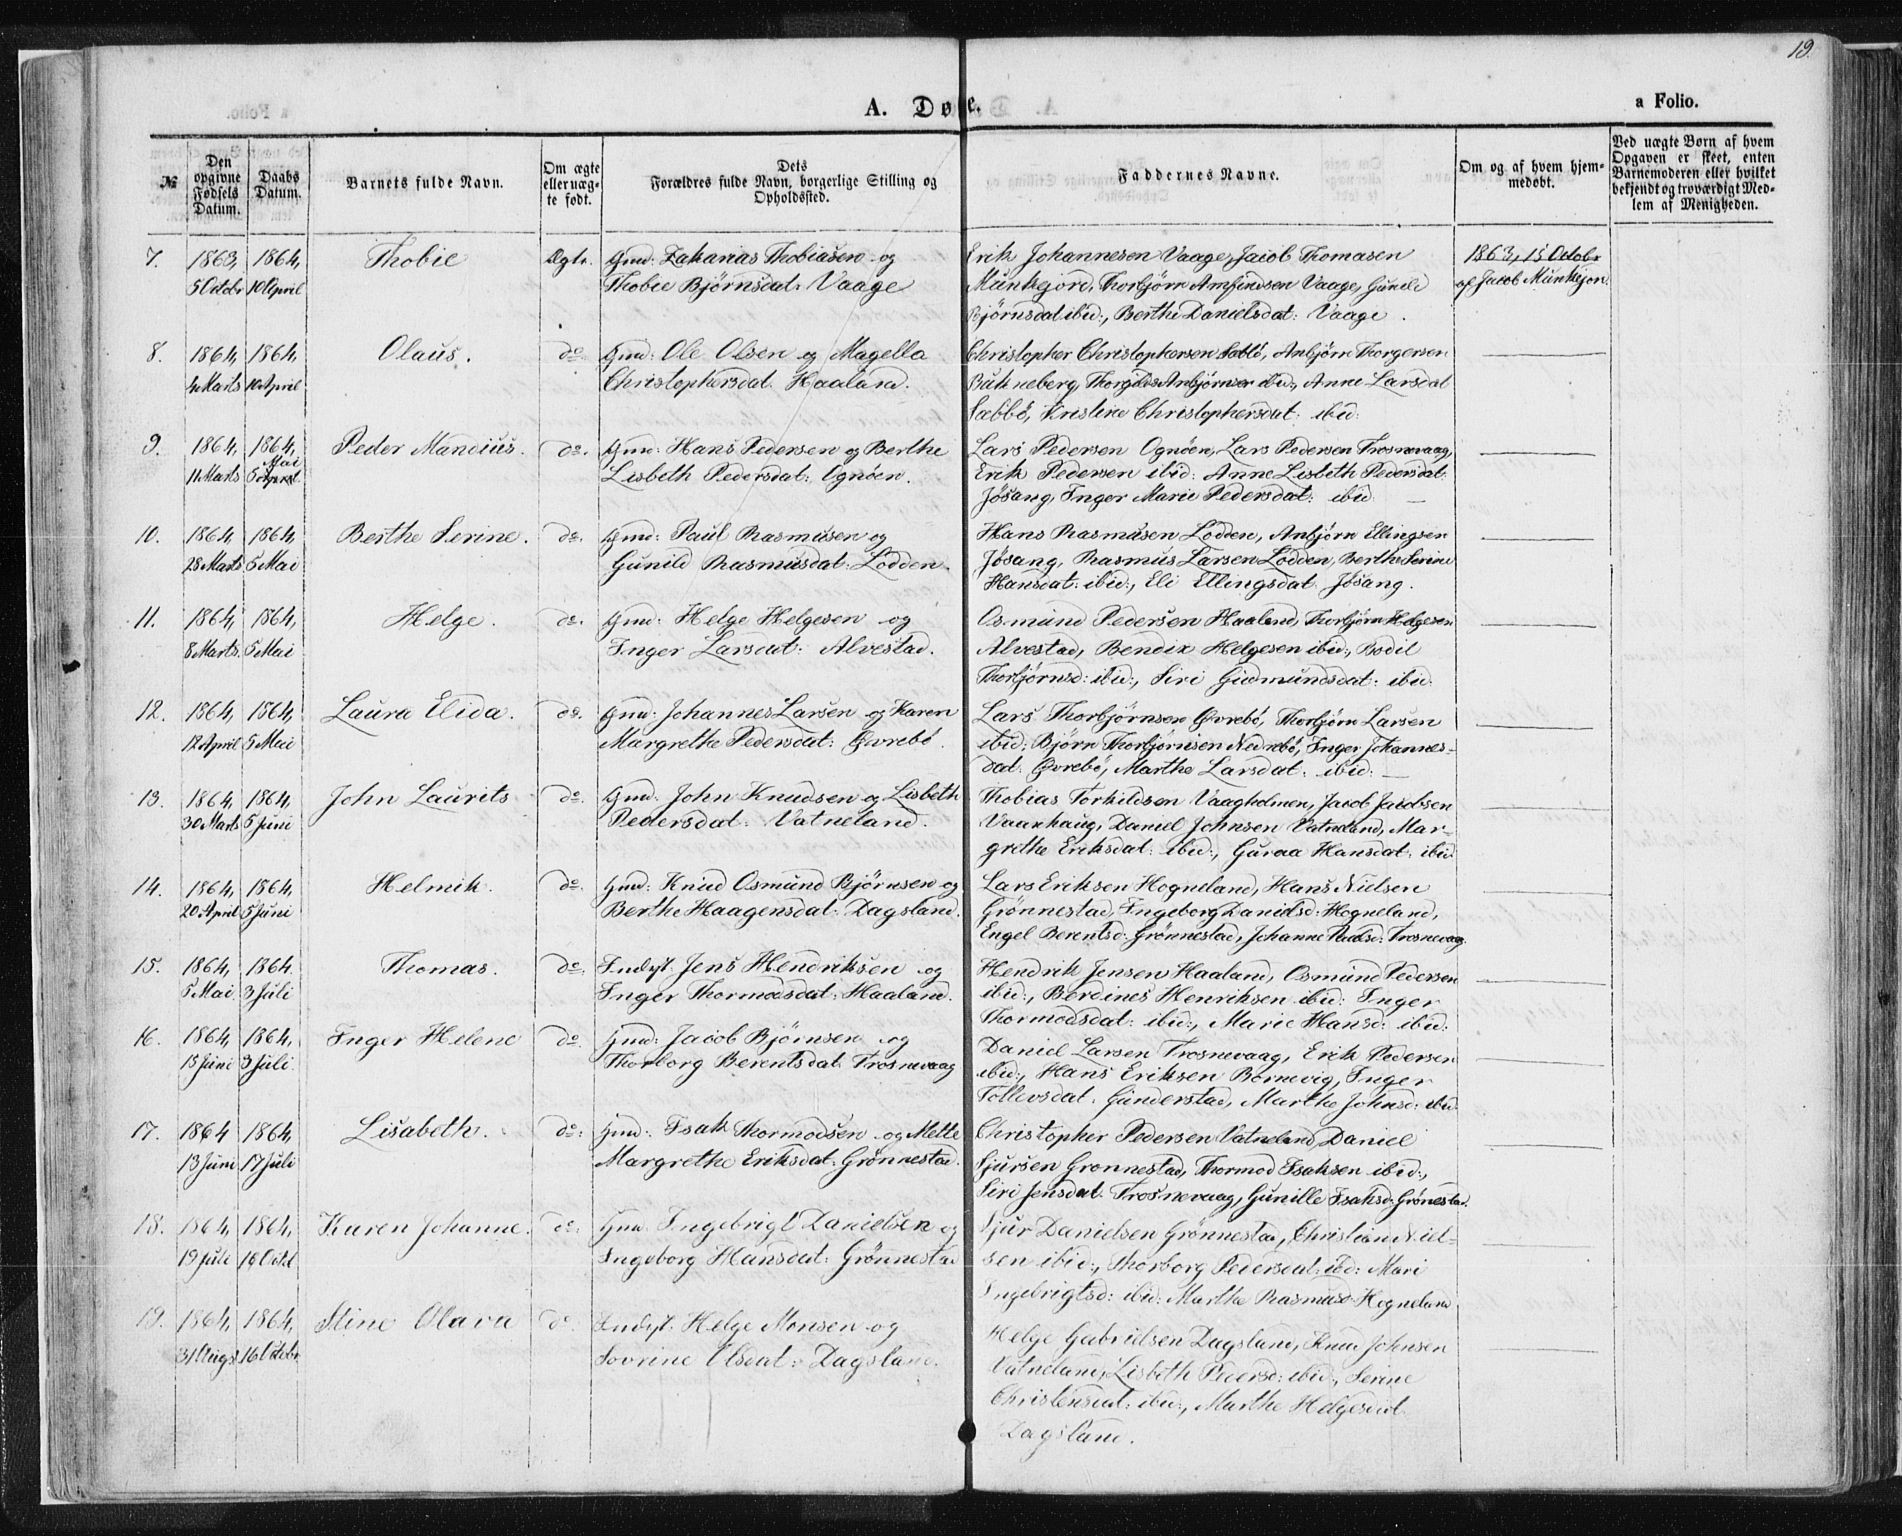 19.
A. Døbe.
a Folio.
№
Den opgivne Fødsels Datum.
Daabs Datum.
Barnets fulde Navn.
Om ægte eller uægte født.
Dets Forældres fulde Navn, borgerlige Stilling og Opholdssted.
Faddernes Navne.
Om og af hvem hjemmedøbt.
Ved uægte Børn af hvem Opgaven er skeet, enten Barnemoderen eller hvilket bekjendt og troværdigt Medlem af Menigheden.
7. 1863, 1864, Thobie Ægte. Gmd: Zakarias Thobiasen og Erik Johannesen Vaage, Jacob Thomasen 1863, 15 Octobr
5 Octobr 10 April Thobie Bjørnsdat: Vaage Munkejord, Thorbjørn Amfindsen Vaage, Gunild af Jacob Munkejor.
Bjørnsdat ibid:, Berthe Danielsdat: Vaage.
8. 1864, 1864, Olaus. do. Gmd: Ole Olsen og Magella Christopher Christophersen Sæbbö, Anbjørn Thorgersen
4 Marts 10 April Christophersdat. Haaland. Bukneberg, Anbjørnsen ibid:, Anne Larsdat
Sæbbö, Kristine Christophersdat: ibid:
9. 1864, 1864, Peder Mandius. do. Gmd: Hans Pedersen og Berthe Lars Pedersen Ognöen, Lars Pedersen Trosnevaag,
11 Marts 5 Mai Lisbeth Pedersdat: Ognöen. Erik Pedersen ibid: Anne Lisbeth Pedersdat:
Jösang, Inger Marie Pedersdat: ibid:
10. 1864, 1864, Berthe Serine. do. Gmd: Paul Rasmusen og Hans Rasmusen Lodden, Anbjørn Ellingsen
28 Marts 5 Mai Gunild Rasmusdat: Lodden. Jösang, Rasmus Larsen Lodden, Berthe Serine
Hansdat: ibid:, Eli Ellingsdat: Jösang.
11. 1864, 1864, Helge. do. Gmd: Helge Helgesen og Osmund Pedersen Haaland, Thorbjørn Helgesen
8 Marts. 5 Mai Inger Larsdat: Alvestad. Alvestad, Bendix Helgesen ibid:, Bodil
Thorbjørnsd: ibid:, Siri Gudmundsdat: ibid:
12. 1864, 1864, Laura Elida. do. Gmd: Johannes Larsen og Karen Lars Thorbjørnsen Øvrebö, Thorbjørn Larsen
12 April 5 Mai Margrethe Pedersdat: Øvrebö. ibid: Bjørn Thorbjørnsen Nedrebö, Inger Johannes-
dat: Øvrebö, Marthe Larsdat: ibid:
13. 1864, 1864, John Laurits do. Gmd: John Knudsen og Lisbeth Thobias Torkildsen Vaagholmen, Jacob Jacobsen
30 Marts 5 Juni Pedersdat: Vatneland. Vaarhaug, Daniel Johnsen Vatneland, Mar-
grethe Eriksdat: ibid:, Guroa Hansdat: ibid:
14. 1864, 1864, Helmik. do. Gmd: Knud Osmund Bjørnsen og Lars Eriksen Hogneland, Hans Nielsen
20 April 5 Juni Berthe Haagensdat: Dagsland. Grönnestad, Ingeborg Danielsd: Hogneland,
Engel Berentsd: Grönnestad, Johanne Trosnevaag.
15. 1864, 1864. Thomas. do. Indst. Jens Hendriksen og Hendrik Jensen Haaland, Osmund Pedersen
8 Mai. 3 Juli Inger Thormodsdat: Haaland. ibid:, Berdines Henriksen ibid: Inger
Thormodsdat: ibid:, Marie Hansd: ibid:
16. 1864, 1864, Inger Helene do. Gmd: Jacob Bjørnsen og Daniel Larsen Trosnevaag, Erik Pedersen
13 Juni 3 Juli. Thorborg Berentsdat: Trosnevaag ibid:, Hans Eriksen Bornevig, Inger
Tollevsdat. Gunderstad, Marthe Johnsd: ibid:
17. 1864 1864, Lisabeth. do: Gmd: Isak Thormodsen og Mette Christopher Pedersen Vatneland, Daniel
13 Juni 17 Juli Margrethe Eriksdat: Grönnestad. Sjursen Gronnestad, Thormod Isaksen ibid:,
Siri Jensdat. Trosnevaag, Gunille Isaksd: Grönestad.
18. 1864, 1864, Karen Johanne. do: Gmd. Ingebrigt Danielsen og Sjur Danielsen Grönnestad, Christian Niel-
19 Juli 16 Octbr Ingeborg Hansdat: Grönnestad sen ibid:, Thorborg Pedersdat: ibid: Mari
Ingebrigtsd: ibid: Marthe Rasmusd Hogneland
19. 1864, 1864, Stine Olava do. Indst. Helge Monsen og Helge Gabrielsen Dagsland, Knud Johnsen
31 Augst 16 Octobr. Sovrine Olsdat: Dagsland. Vatneland, Lisbeth Pedersd: ibid:, Serine
Christensdat: ibid:, Marthe Helgesdat.
Dagsland.